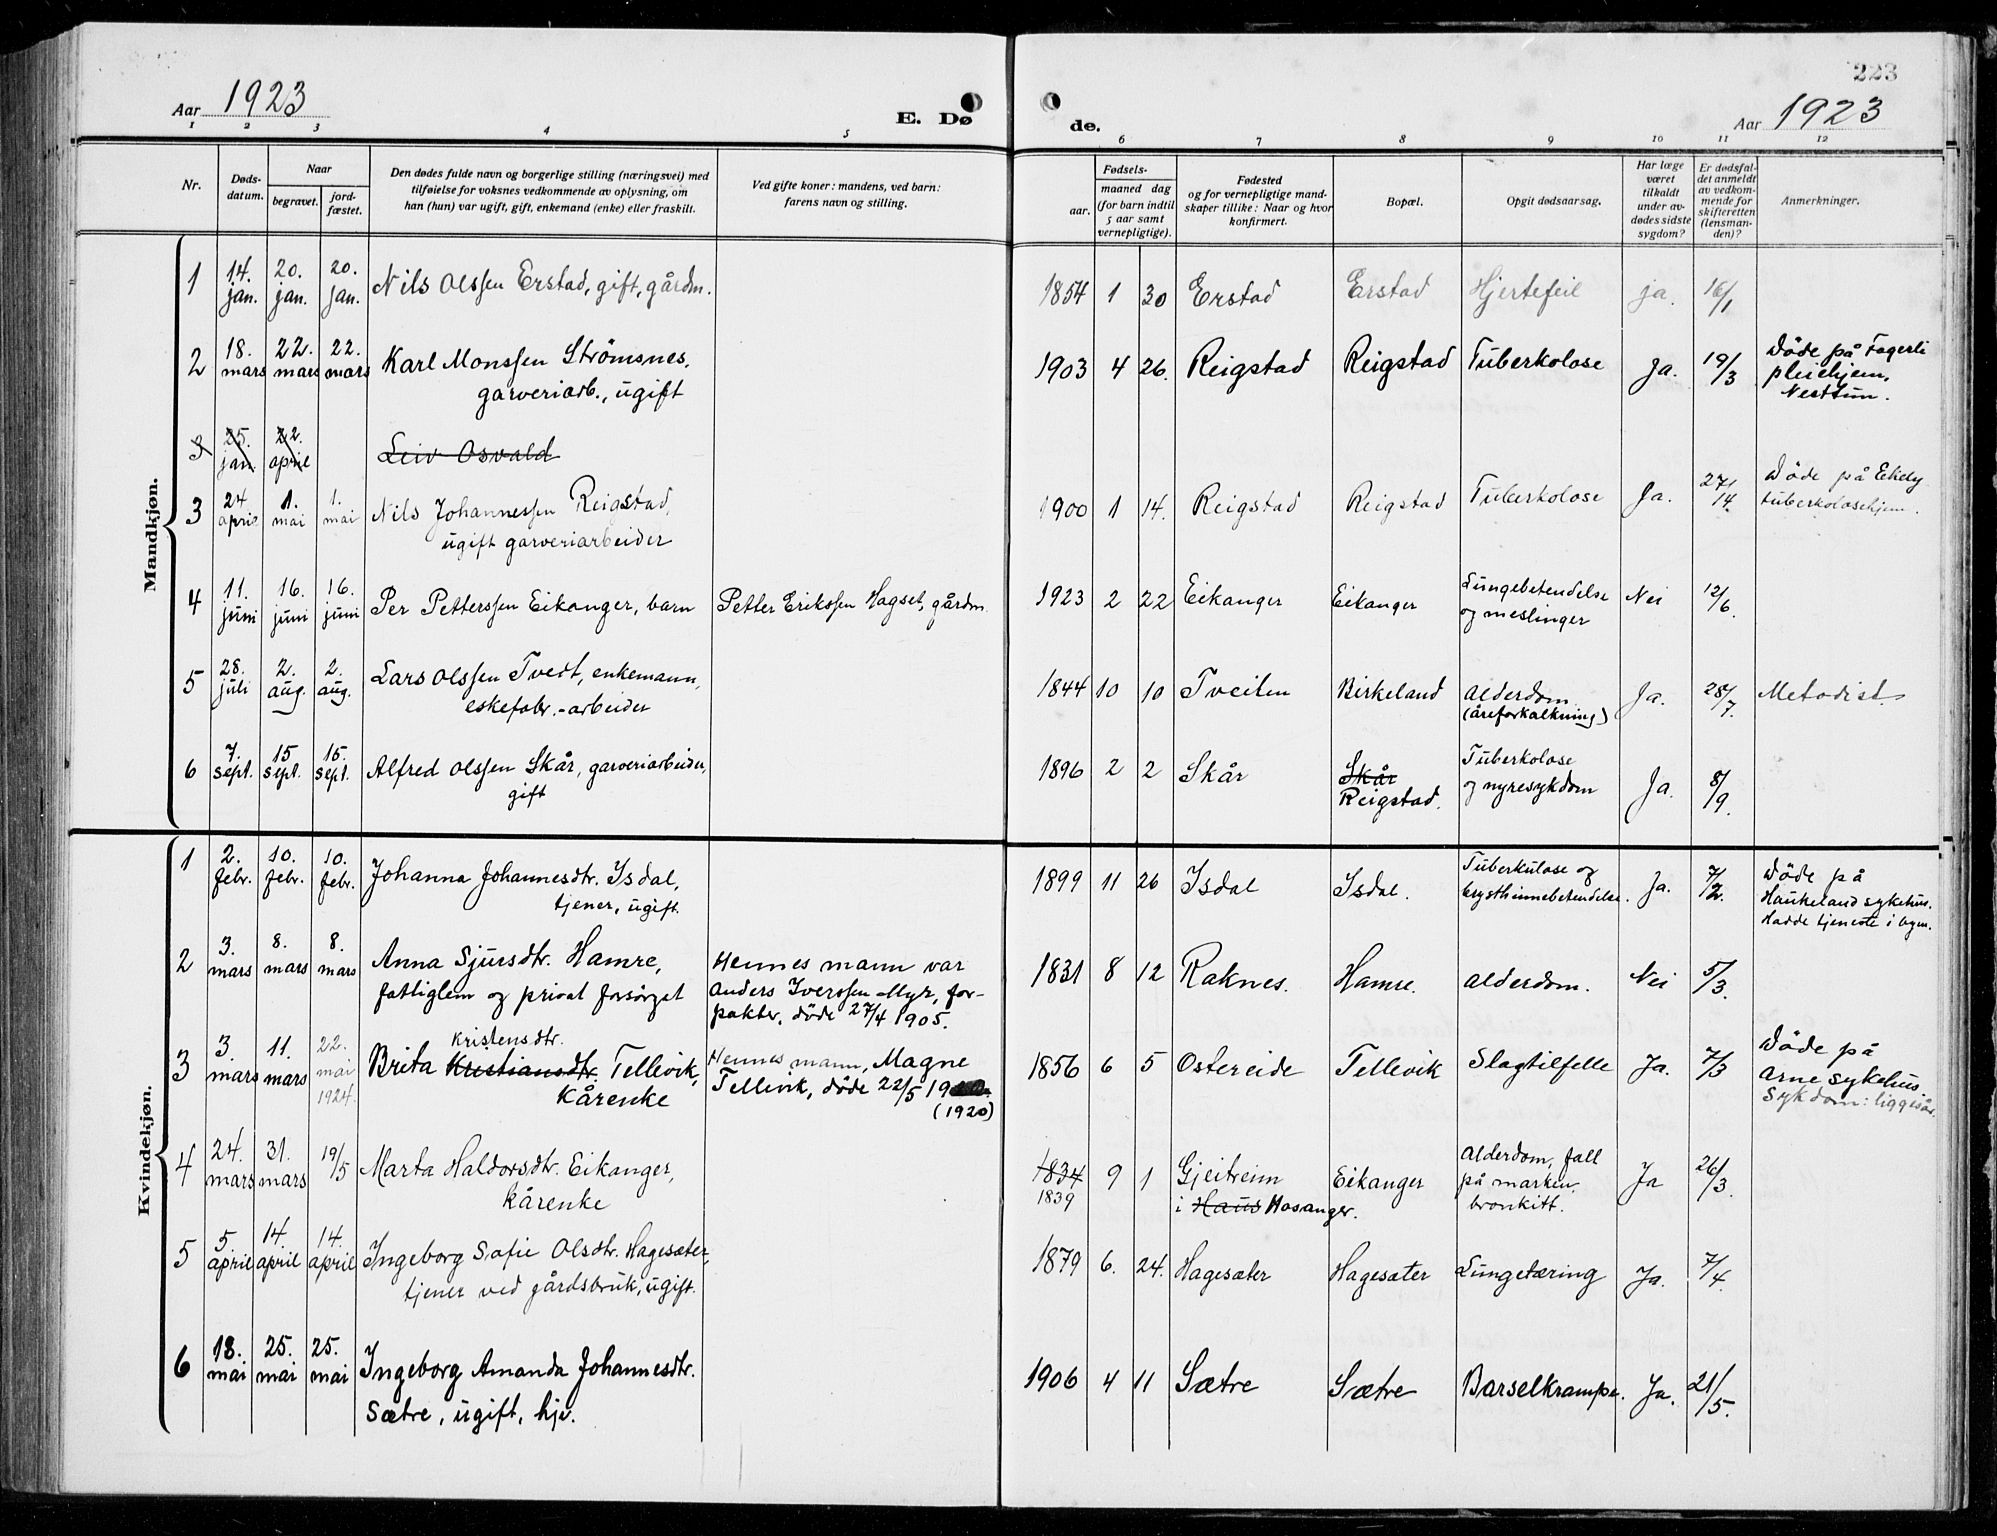 223
Aar 1923
E. Dø
de.
Aar 1923
1 2 3 4 5 6 7 8 9 10 11 12
Nr.
Døds-
datum.
Naar
begravet.
jord-
fæstet.
Den dødes fulde navn og borgerlige stilling (næringsvei) med
tilføielse for voksnes vedkommende av oplysning, om
han (hun) var ugift, gift, enkemand (enke) eller fraskilt.
Ved gifte koner: mandens, ved barn:
farens navn og stilling.
Fødsels-
aar.
maaned dag
(for barn indtil
5 aar samt
vernepligtige).
Fødested
og for vernepligtige mand-
skaper tillike: Naar og hvor
konfirmert.
Bopæl.
Opgit dødsaarsag.
Har læge
været
tilkaldt
under av-
dødes sidste
sygdom?
Er dødsfal-
det anmeldt
av vedkom-
mende for
skifteretten
(lensman-
den)?
Anmerkninger.
Mandkjøn.
1 14. jan. 20. jan. 20. jan. Nils Olssen Erstad, gift, gårdm. 1854 1 30 Erstad Erstad Hjertefeil ja. 16/1
2 18. mars 22. mars 22. mars Karl Monssen Strømsnes,
garveriarb., ugift
1903 4 26. Reigstad Reigstad Tuberkolose Ja. 19/3
Döde på Fagerli
pleiehjem,
Nesttun.
3 25. jan 22. april Leiv Osvald
3 24 april 1. mai 1. mai Nils Johannessen Reigstad,
ugift garveriarbeider
1900 1 14. Reigstad Reigstad Tuberkolose Ja. 27/14.
Döde på Ekely
tuberkolosehjem.
4 11. juni 16. juni 16. juni Per Petterssen Eikanger, barn Petter Erikssen Hagset, gårdm. 1923 2 22 Eikanger Eikanger Lungebetendelse
og meslinger
Nei 12/6.
5 28. juli 2. aug. 2. aug. Lars Olssen Tvedt, enkemann,
eskefabr.-arbeider
1844 10 10 Tveiten Birkeland Alderdom
(åreforkalkning)
Ja. 28/7. Metodist.
6 7. sept. 15 sept. 15. sept. Alfred Olssen Skår, garveriarbeider,
gift
1896 2 2 Skår Skår
Reigstad.
Tuberkolose
og nyresykdom
Ja. 8/9.
Kvindekjøn.
1 2. febr. 10. febr. 10. febr. Johanna Johannesdtr. Isdal,
tjener, ugift.
1899 11 26 Isdal Isdal. Tuberkulose og
brysthinnebetendelse.
Ja. 7/2.
Döde på
Haukeland sykehus.
Hadde tjeneste i byen.
2 3. mars 8. mars 8. mars Anna Sjursdtr. Hamre,
fattiglem og privat forsörget
Hennes mann var
Anders Iverssen Myr, for-
pakter, döde 27/4 1905.
1831 8 12 Raknes. Hamre. Alderdom. Nei 5/3.
3 3. mars 11. mars 22. mai 1924.
kristensdtr.
Brita Kristiansdtr Tellevik,
kårenke
Hennes mann, Magne
Tellevik, döde 22/5 19
(1920)
1856 6 5 Ostereide Tellevik Slagtilfelle Ja. 7/3
Döde på
Arne sykehus.
Sykdom: liggesår.
4 24. mars 31. mars 19/5 Marta Haldorsdtr. Eikanger,
kårenke
1834
1839
9 1 Gjeitreim
i Haus Hosanger.
Eikanger Alderdom, fall
på marken,
bronkitt.
Ja 26/3.
5 5 april 14 april 14. april Ingeborg Sofie Olsdtr. Hagesæter,
tjener ved gårdsbruk, ugift.
1879 6. 24. Hagesæter Hagesæter Lungetæring Ja. 7/4.
6 18. mai 25. mai 25. mai Ingeborg Amanda Johannesdtr.
Sætre, ugift, hjv.
1906 4 11 Sætre Sætre Barselkrampe. Ja. 21/5.